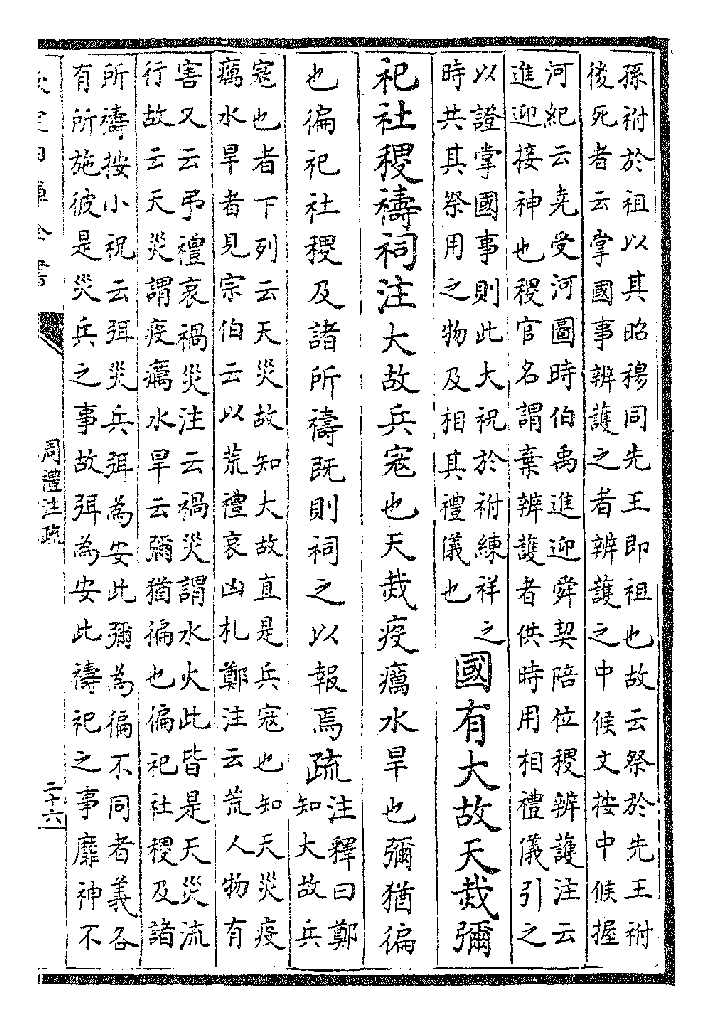 孫祔於祖以其昭穆同先王即祖也故云祭於先王祔
後死者云掌國事辨護之者辨護之中候文按中候握
河紀云堯受河圖時伯禹進迎舜契陪位稷辨護注云
進迎接神也稷官名謂棄辨護者供時用相禮儀引之
以證掌國事則此大祝於祔練祥之
時共其祭用之物及相其禮儀也
國有大故天烖彌
祀社稷禱祠注大故兵寇也天烖疫癘水旱也彌猶徧
也徧祀社稷及諸所禱既則祠之以報焉疏
注釋曰鄭
知大故兵
寇也者下列云天災故知大故直是兵寇也知天災疫
癘水旱者見宗伯云以荒禮哀凶札鄭注云荒人物有
害又云弔禮哀禍災注云禍災謂水火此皆是天災流
行故云天災謂疫癘水旱云彌猶徧也徧祀社稷及諸
所禱按小祝云弭災兵弭為安此彌為徧不同者義各
有所施彼是災兵之事故弭為安此禱祀之事靡神不
周禮注疏
二十六